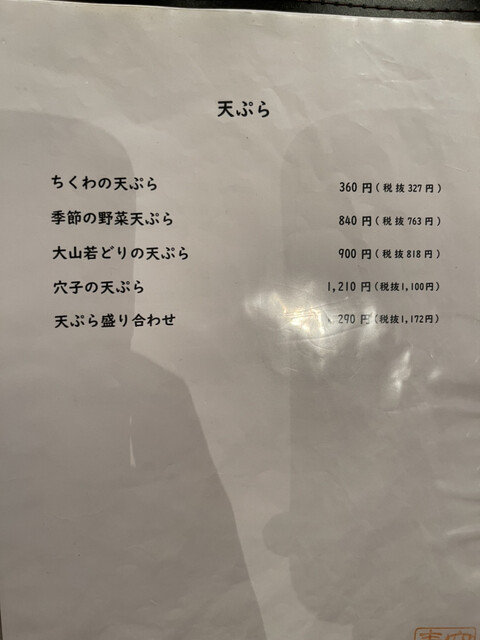 天ぷら
ちくわの天ぷら 360円(税抜327円)
季節の野菜天ぷら 840円(税抜763円)
大山若どりの天ぷら 900円(税抜818円)
穴子の天ぷら 1,210円(税抜1,100円)
天ぷら盛り合わせ 290円(税抜1,172円)